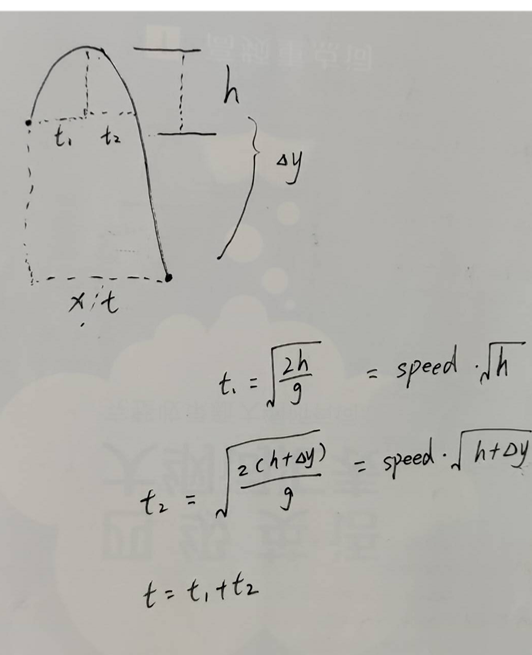 h
t₁ t₂
Δy
x; t
t₁ = √(2h/g) = speed · √h
t₂ = √(2(h+Δy)/g) = speed · √(h+Δy)
t = t₁ + t₂